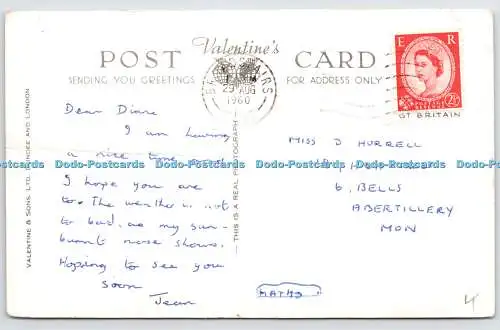 POST Valentine's CARD
SENDING YOU GREETINGS FOR ADDRESS ONLY
29 AUG
1960
E R
2½D
GT BRITAIN
Dear Diane
I am having
a nice time
I hope you are
to. The weather is not
to bad, as my sun-
burnt nose shows.
Hoping to see you
soon
Jean
MISS D HURRELL
6, BELLS
ABERTILLERY
MON
MATHS
VALENTINE & SONS, LTD. DUNDEE AND LONDON
THIS IS A REAL PHOTOGRAPH
Dodo-Postcards Dodo-Postcards Dodo-Postcards Dodo-Postcards Dodo-Postcards Dodo-Postcards
4